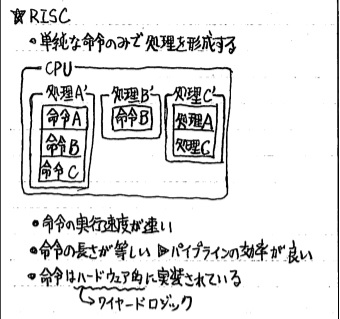 ☆RISC
・単純な命令のみで処理を形成する
CPU
処理A'
命令A
命令B
命令C
処理B'
命令B
処理C'
処理A
処理C
・命令の実行速度が速い
・命令の長さが等しい ▷パイプラインの効率が良い
・命令はハードウェア的に実装されている
↳ワイヤードロジック